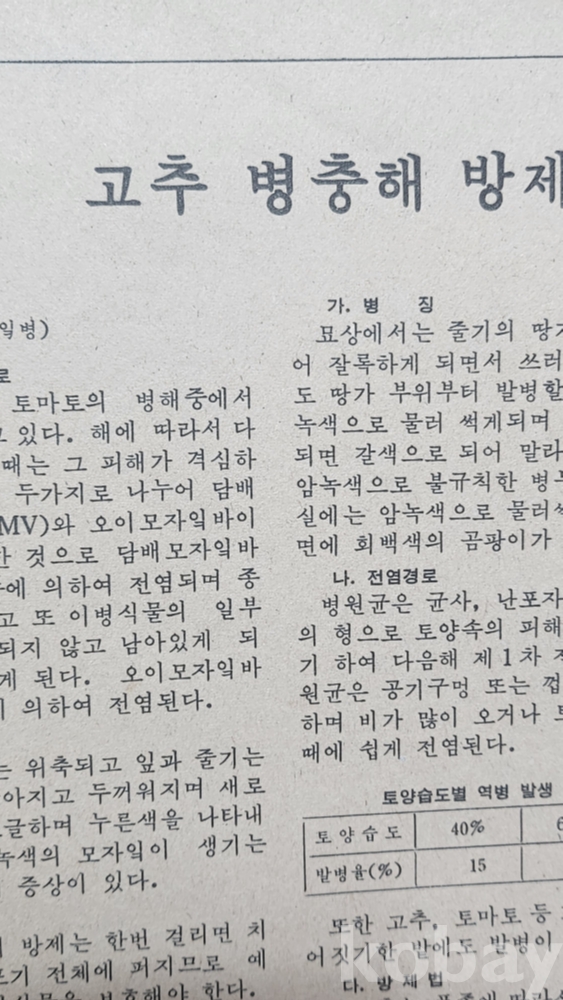 고추 병충해 방제
일병)
로
토마토의 병해중에서
있다. 해에 따라서 다
때는 그 피해가 격심하
두가지로 나누어 담배
MV)와 오이모자잌바이
것으로 담배모자잌바
에 의하여 전염되며 종
고 또 이병식물의 일부
되지 않고 남아있게 되
게 된다. 오이모자잌바
의하여 전염된다.
는 위축되고 잎과 줄기는
아지고 두꺼워지며 새로
글하며 누른색을 나타내
녹색의 모자잌이 생기는
증상이 있다.
방제는 한번 걸리면 치
포기 전체에 퍼지므로 예
보호해야 한다.
가. 병 징
묘상에서는 줄기의 땅가
어 잘록하게 되면서 쓰러
도 땅가 부위부터 발병할
녹색으로 물러 썩게되며
되면 갈색으로 되어 말라
암녹색으로 불규칙한 병
실에는 암녹색으로 물러썩
면에 회백색의 곰팡이가
나. 전염경로
병원균은 균사, 난포자
의 형으로 토양속의 피해
기 하여 다음해 제1차
원균은 공기구멍 또는 껍
하며 비가 많이 오거나
때에 쉽게 전염된다.
토양습도별 역병 발생
토양습도 40% 6
발병율(%) 15
또한 고추, 토마토 등
어짓기한 밭에도 발병이
다. 방제법
kobay